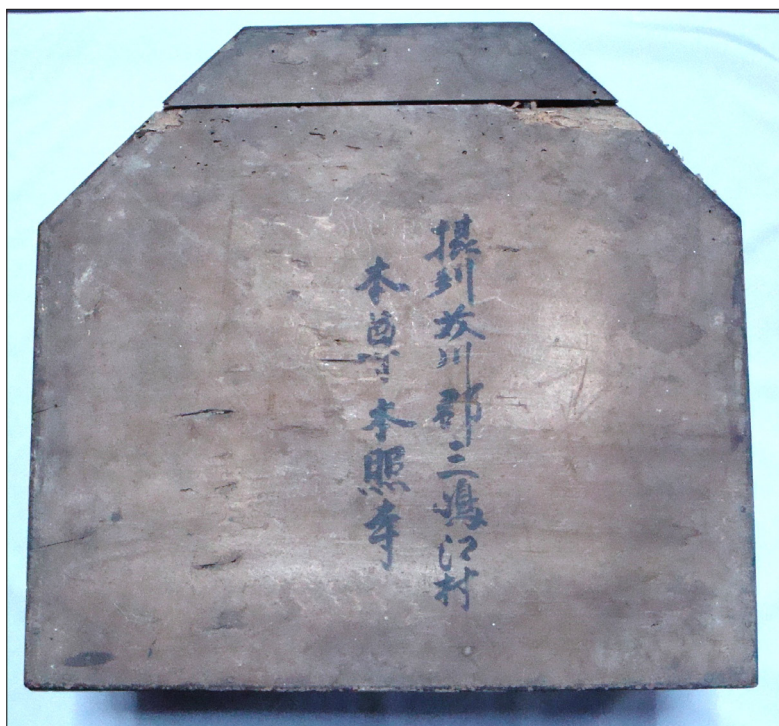 摂州芥川郡三嶋江村
本尊 本照寺